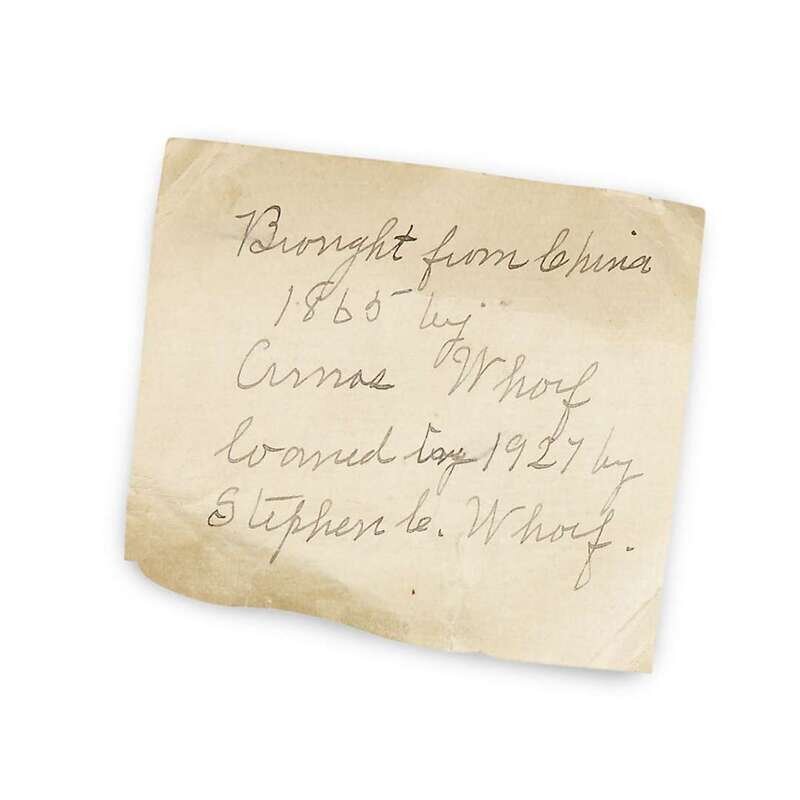 Brought from China
1865 by
Amos Whorf
loaned by 1927 by
Stephen C. Whorf.